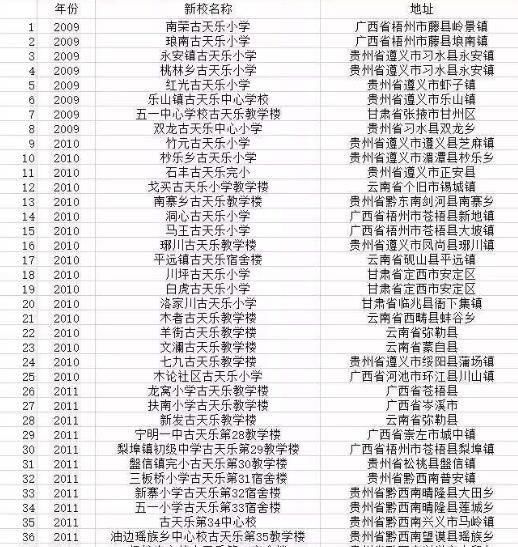 年份 新校名称 地址
1 2009 南荣古天乐小学 广西省梧州市藤县岭景镇
2 2009 琅南古天乐小学 广西省梧州市藤县琅南镇
3 2009 永安镇古天乐小学 贵州省遵义市习水县永安镇
4 2009 桃林乡古天乐小学 贵州省遵义市习水县永安镇
5 2009 红光古天乐小学 贵州省遵义市虾子镇
6 2009 乐山镇古天乐中心学校 贵州省遵义市乐山镇
7 2009 五一中心学校古天乐教学楼 甘肃省张掖市甘州区
8 2009 双龙古天乐中心小学 贵州省习水县双龙乡
9 2010 竹元古天乐小学 贵州省遵义市遵义县芝麻镇
10 2010 杪乐乡古天乐小学 贵州省遵义市湄潭县杪乐乡
11 2010 石丰古天乐完小 贵州省遵义市正安县
12 2010 戈买古天乐小学教学楼 云南省个旧市锡城镇
13 2010 南寨乡古天乐教学楼 贵州省黔东南剑河县南寨乡
14 2010 洞心古天乐小学 广西省梧州市苍梧县新地镇
15 2010 马王古天乐小学 广西省梧州市苍梧县大坡镇
16 2010 琊川古天乐教学楼 贵州省遵义市凤尚县琊川镇
17 2010 平远镇古天乐宿舍楼 云南省砚山县平远镇
18 2010 川坪古天乐小学 甘肃省定西市安定区
19 2010 白虎古天乐小学 甘肃省定西市安定区
20 2010 洛家川古天乐小学 甘肃省临兆县衙下集镇
21 2010 木者古天乐教学楼 云南省西畴县蚌谷乡
22 2010 羊街古天乐教学楼 云南省弥勒县
23 2010 文澜古天乐教学楼 云南省蒙自县
24 2010 七九古天乐教学楼 贵州省遵义市绥阳县蒲场镇
25 2010 木论社区古天乐小学 广西省河池市环江县川山镇
26 2011 龙窝小学古天乐教学楼 广西省苍梧县
27 2011 扶南小学古天乐教学楼 广西省岑溪市
28 2011 新发古天乐教学楼 云南省弥勒县
29 2011 宁明一中古天乐第28教学楼 广西省崇左市城中镇
30 2011 梨埠镇初级中学古天乐第29教学楼 广西省梧州市苍梧县梨埠镇
31 2011 盤信镇完小古天乐第30教学楼 贵州省松桃县盤信镇
32 2011 三板桥小学古天乐第31宿舍楼 贵州省黔西南普安镇
33 2011 新寨小学古天乐第32宿舍楼 贵州省黔西南晴隆县大田乡
34 2011 五一小学古天乐第33宿舍楼 贵州省黔西南晴隆县莲城乡
35 2011 古天乐第34中心校 贵州省黔西南兴义市马岭镇
36 2011 油边瑶族乡中心校古天乐第35教学楼 贵州省黔西南望谟县瑶族乡